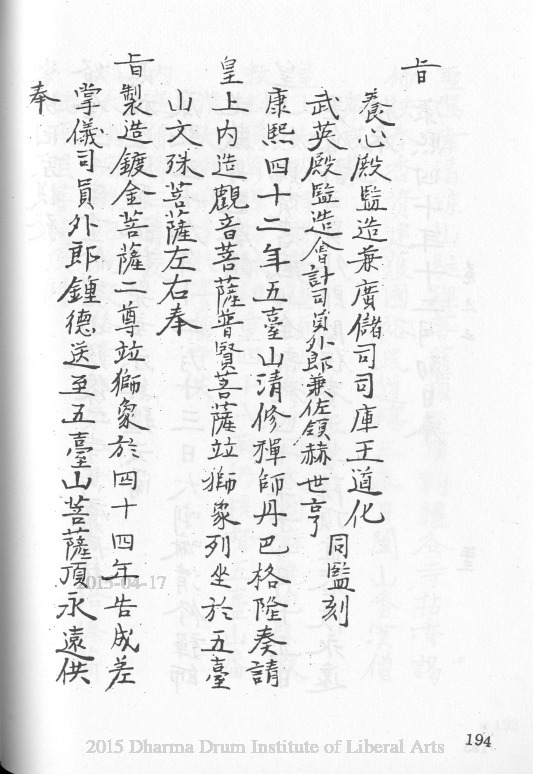 旨
養心殿監造兼廣儲司司庫王道化
武英殿監造會計司員外郎兼佐領赫世亨
同監刻
康熙四十二年五臺山清修禪師丹巴格隆奏請
皇上內造觀音菩薩普賢菩薩竝獅象列坐於五臺
山文殊菩薩左右奉
旨製造鍍金菩薩二尊竝獅象於四十四年告成差
掌儀司員外郎鍾德送至五臺山菩薩頂永遠供
奉
2015-04-17
194
2015 Dharma Drum Institute of Liberal Arts